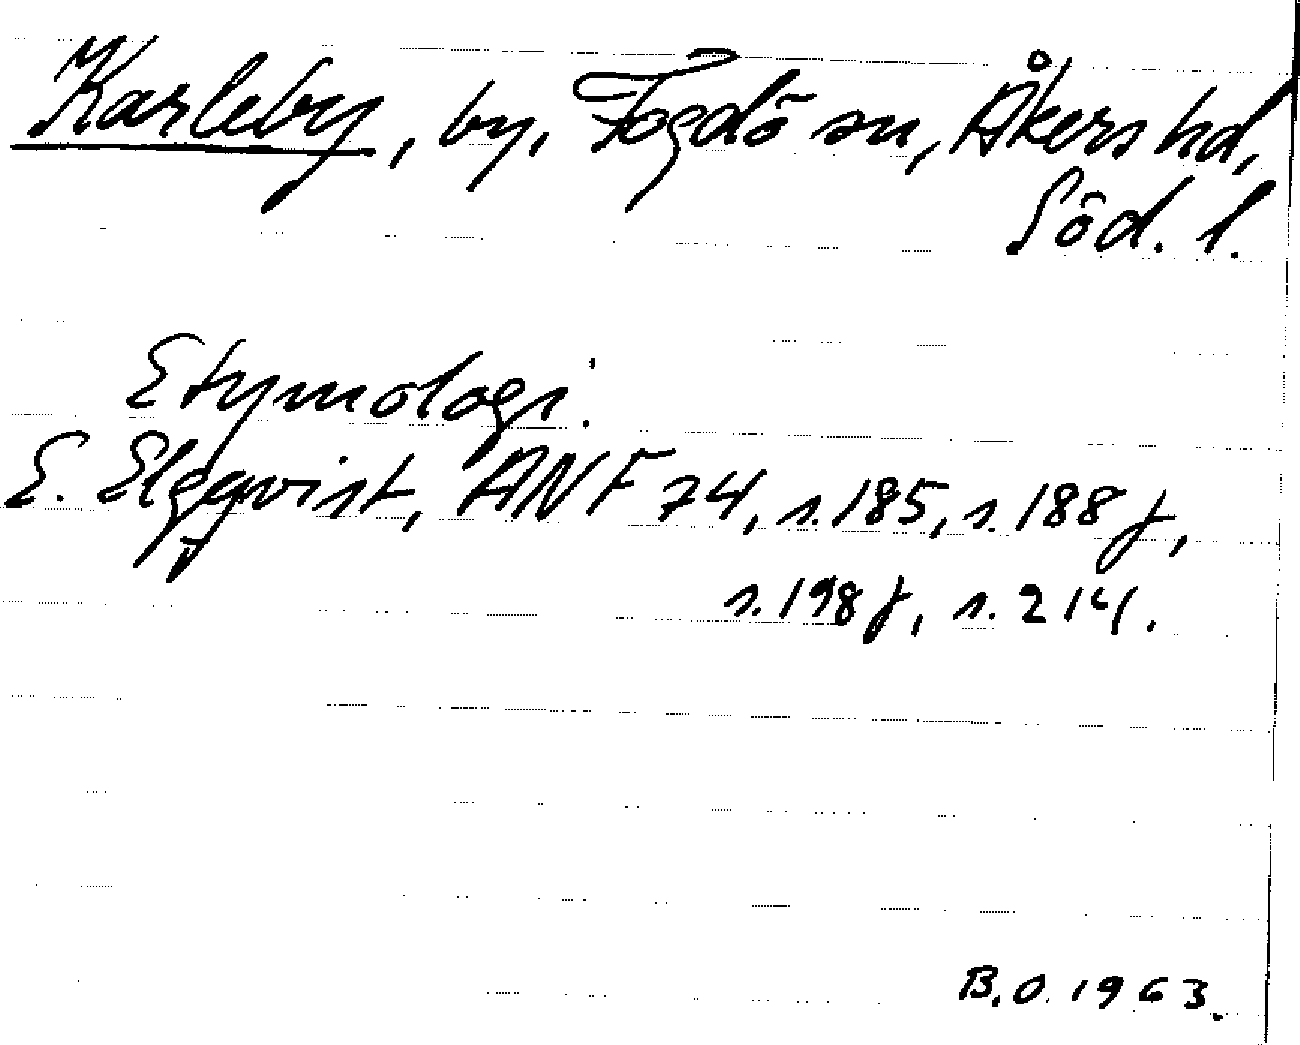 Karleby, by, Fogdö sn, Åkers hd,
Söd. l.
Etymologi.
E. Elgqvist, ANF 74, s. 185, s. 188 f,
s. 198 f, s. 214.
B.O. 1963.